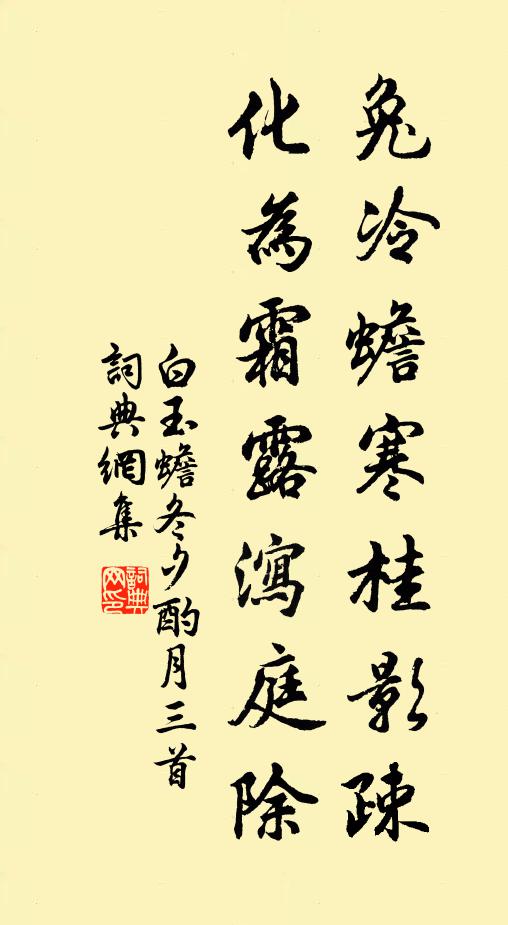 兔冷蟾寒桂影疎
化為霜露瀉庭除
白玉蟾冬夕酌月三首
詞典網集
詞典網印